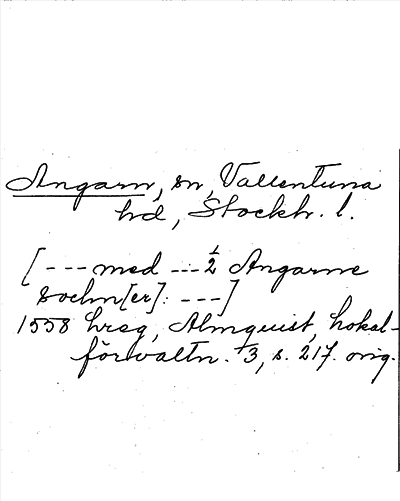 Angarn, sn, Vallentuna
hd, Stockh. l.
[---med ---½ Angarne
sochn[er]: ---]
1558 hreg, Almquist, Lokal-
förvaltn. 13, s. 217. orig.